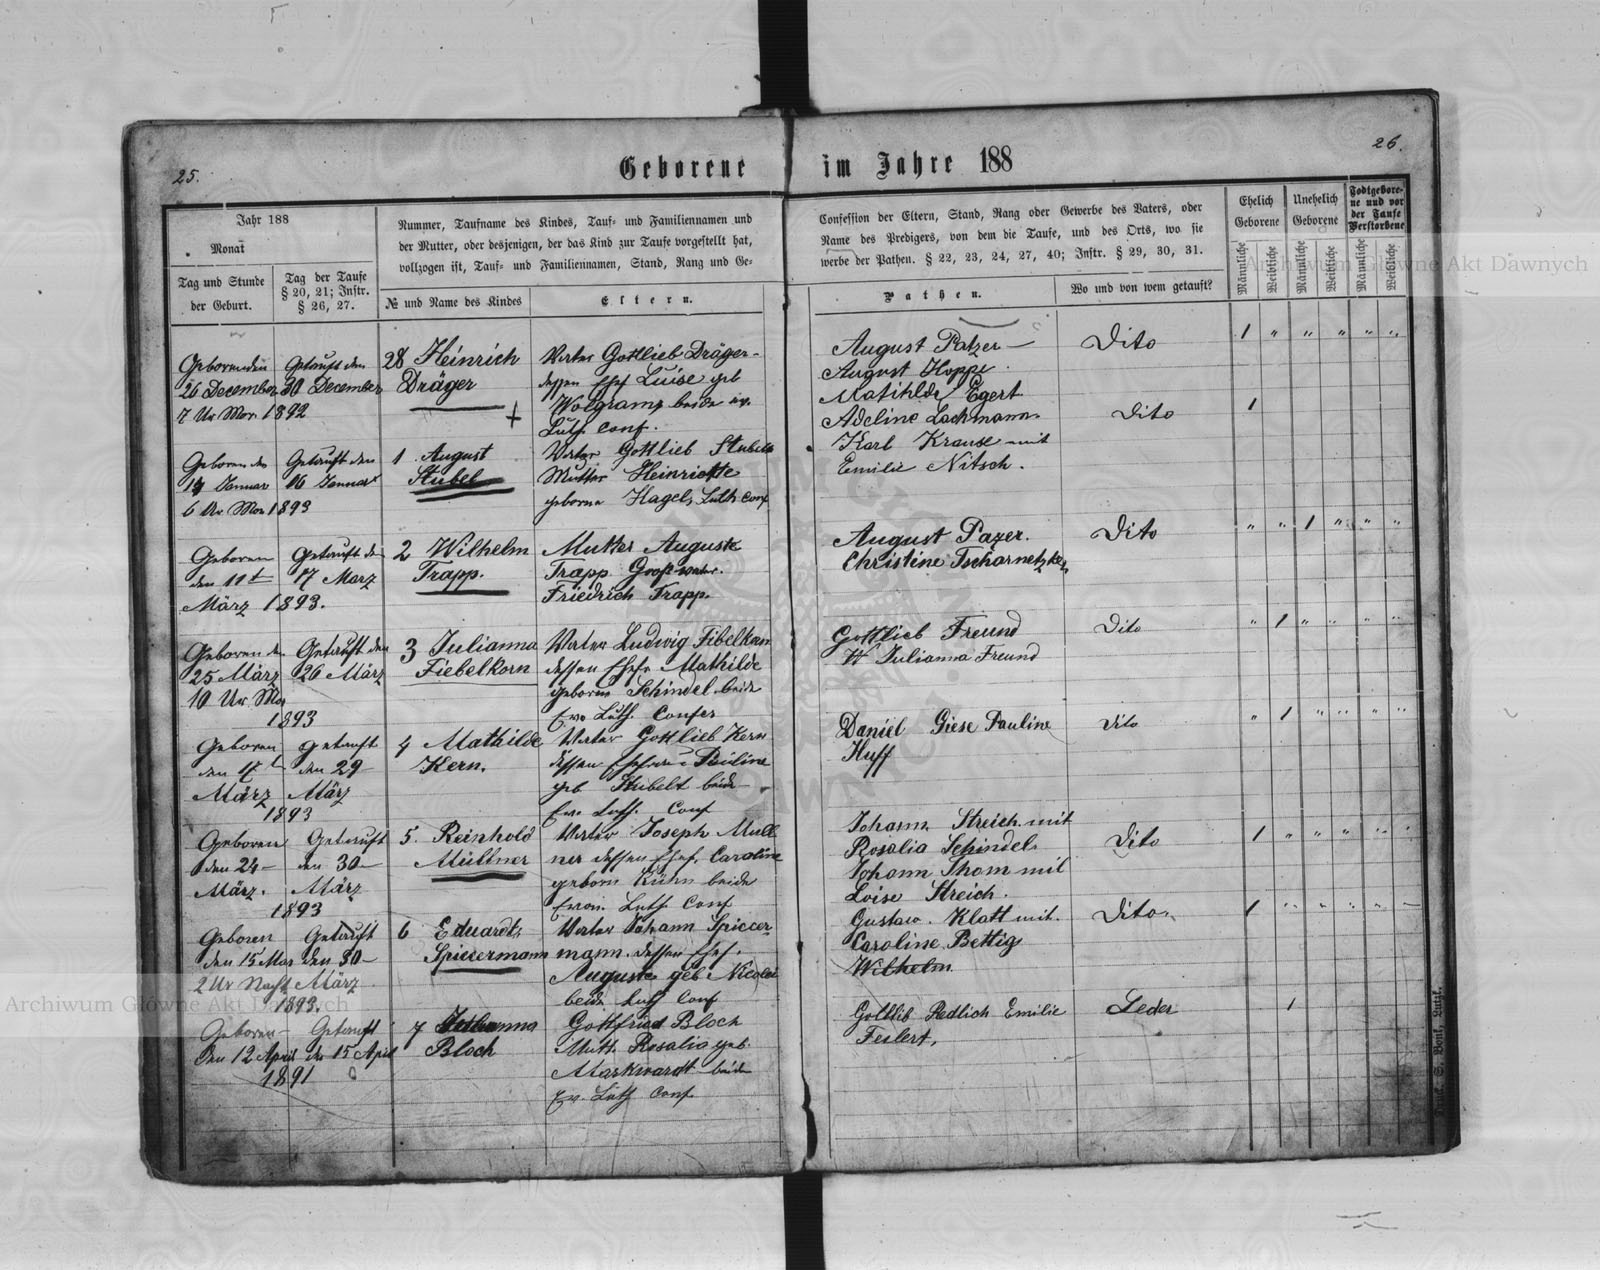 25.
26.
Geborene im Jahre 188
Jahr 188
Monat
Tag und Stunde
der Geburt.
Tag der Taufe
§ 20, 21; Instr.
§ 26, 27.
Nummer, Taufname des Kindes, Tauf- und Familiennamen und
der Mutter, oder desjenigen, der das Kind zur Taufe vorgestellt hat,
vollzogen ist, Tauf- und Familiennamen, Stand, Rang und Ge-
№ und Name des Kindes
Eltern.
Confession der Eltern, Stand, Rang oder Gewerbe des Vaters, oder
Name des Predigers, von dem die Taufe, und des Orts, wo sie
werbe der Pathen. § 22, 23, 24, 27, 40; Instr. § 29, 30, 31.
Pathen.
Wo und von wem getauft?
Ehelich
Geborene
Unehelich
Geborene
Todtgebore-
ne und vor
der Taufe
Verstorbene
Männliche
Weibliche
Männliche
Weibliche
Männliche
Weibliche
Geboren den
26 December
7 Ur Mor. 1892
Getauft den
30 December
28 Heinrich
Dräger
Vater Gottlieb Dräger
dessen Ehef Luise geb
Wolgram beide ev.
Luth. Conf.
August Patzer
August Hoppe
Mathilde Egert
Dito
1 " " " " "
Geboren den
14 Januar
6 Ur Mor 1893
Getauft den
16 Januar
1 August
Stubel
Vater Gottlieb Stubel
Mutter Heinriette
geborne Hagel, Luth Conf
Adeline Lachmann
Karl Krause mit
Emilie Nitsch.
Dito
1
Geboren
den 11t
März 1893.
Getauft den
17 März
2 Wilhelm
Trapp.
Mutter Auguste
Trapp Grossvater.
Friedrich Trapp.
August Pazer.
Christine Tscharnetzke
Dito
" " 1 " " "
Geboren den
25 März
10 Ur Mor
1893
Getauft den
26 März
3 Julianna
Fiebelkorn
Vater Ludwig Fibelkorn
dessen Ehefr Mathilde
geborne Schindel beide
Ev. Luth. Confes
Gottlieb Freund
W Julianna Freund
Dito
" 1 " " " "
Geboren
den
März
1893
Getauft
den 29
März
4 Mathilde
Kern.
Vater Gottlieb Kern
dessen Ehefrau Pauline
geb Stubelt beide
Ev. Luth. Conf
Daniel Giese Pauline
Huff
Dito
" 1 " " " "
Geboren
den 24
März.
1893
Getauft
den 30
März
5. Reinhold
Müllner
Vater Joseph Mull
ner dessen Ehef. Caroline
geborn Kühn beide
Luth Conf
Johann Streich mit
Rosalia Schindel
Johann Thom mit
Loise Streich.
Dito
1 " " " " "
Geboren
den 15 März
2 Ur Nacht
1893.
Getauft
den 30
März
6 Eduardt
Spiccermann
Vater Johann Spiccer
mann. dessen Ehef.
Auguste geb Nicolei
beide Luth Conf
Gustav. Klatt mit.
Caroline Bettig
Wilhelm
Dito
1 " " " "
Geboren
den 12 April
1891
Getauft
den 15 April
7 Johanna
Bloch
Gottfried Bloch
Mutt. Rosalia geb.
Markwardt beide
Ev. Luth Conf
Gotllib Redlich Emilie
Feilert,
Leder
1
Archiwum Główne Akt Dawnych
Archiwum Główne Akt Dawnych